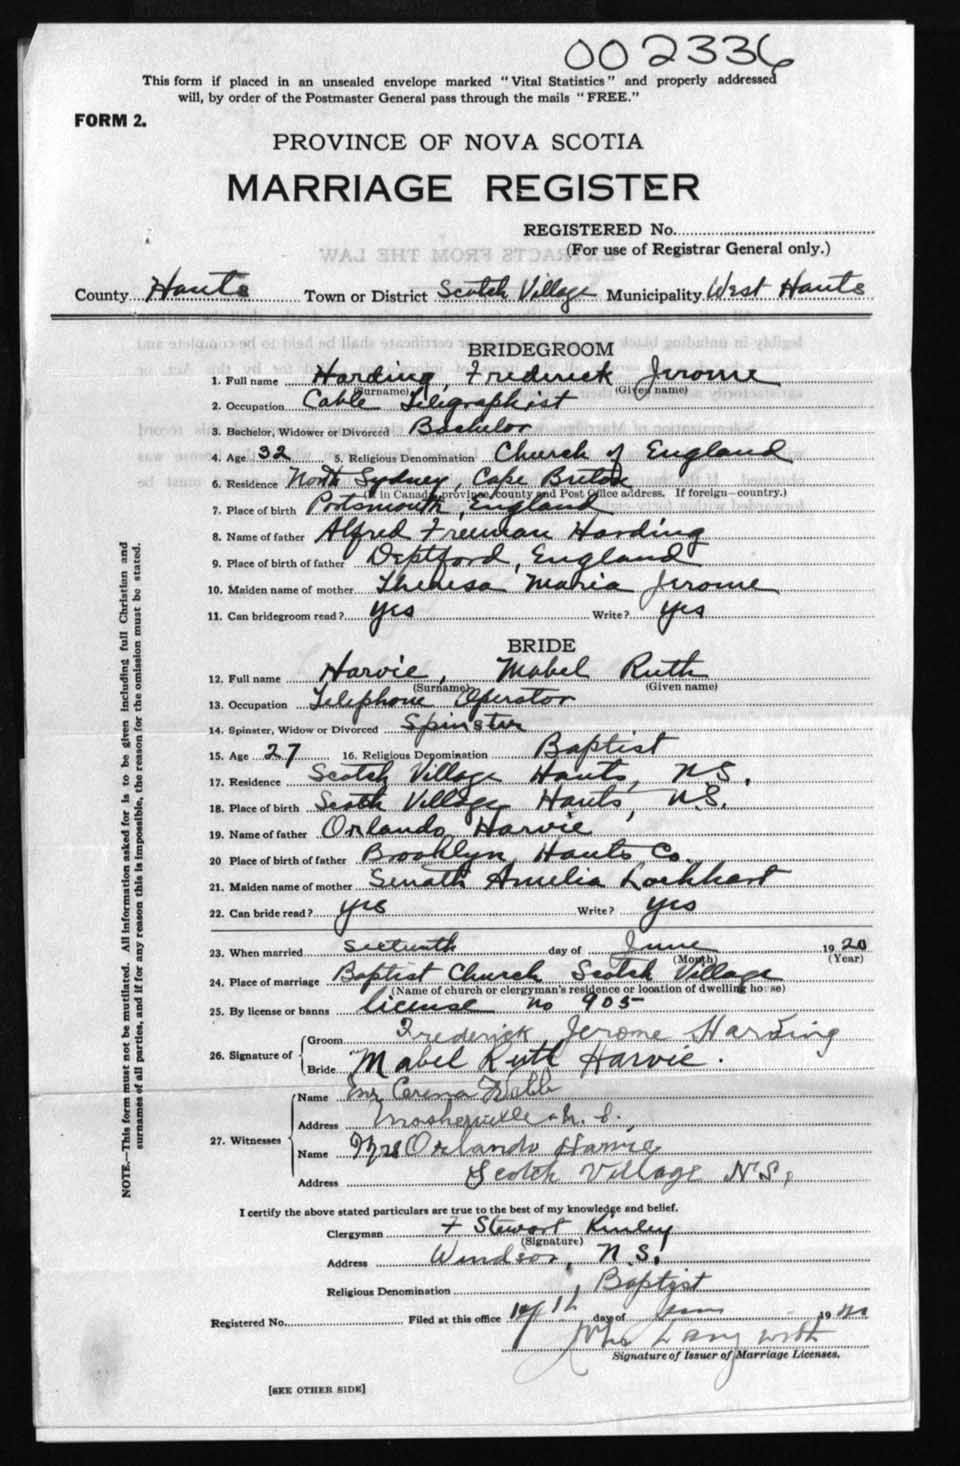 002336
This form if placed in an unsealed envelope marked "Vital Statistics" and properly addressed
will, by order of the Postmaster General pass through the mails "FREE."
FORM 2.
PROVINCE OF NOVA SCOTIA
MARRIAGE REGISTER
REGISTERED No.
(For use of Registrar General only.)
EXTRACTS FROM THE LAW
County Hants Town or District Scotch Village Municipality West Hants
BRIDEGROOM
1. Full name Harding, Frederick Jerome
(Surname) (Given name)
2. Occupation Cable Telegraphist
3. Bachelor, Widower or Divorced Bachelor
4. Age 32 5. Religious Denomination Church of England
6. Residence North Sydney, Cape Breton
(If in Canada, province, county and Post Office address. If foreign—country.)
7. Place of birth Portsmouth, England
8. Name of father Alfred Freeman Harding
9. Place of birth of father Deptford, England
10. Maiden name of mother Theresa Maria Jerome
11. Can bridegroom read? yes Write? yes
BRIDE
12. Full name Harvie, Mabel Ruth
(Surname) (Given name)
13. Occupation Telephone Operator
14. Spinster, Widow or Divorced Spinster
15. Age 27 16. Religious Denomination Baptist
17. Residence Scotch Village Hants, N.S.
18. Place of birth Scotch Village Hants, N.S.
19. Name of father Orlando Harvie
20 Place of birth of father Brooklyn, Hants Co.
21. Maiden name of mother Amelia Lockhart
22. Can bride read? yes Write? yes
23. When married sixteenth day of June 1920
(Month) (Year)
24. Place of marriage Baptist Church Scotch Village
(Name of church or clergyman's residence or location of dwelling house)
25. By license or banns license no 905
26. Signature of
Groom Frederick Jerome Harding
Bride Mabel Ruth Harvie.
27. Witnesses
Name Webb
Address Mosherville N.S.
Name Mrs Orlando Harvie
Address Scotch Village N.S,
I certify the above stated particulars are true to the best of my knowledge and belief.
Clergyman F Stewart Kinley
(Signature)
Address Windsor, N.S.
Religious Denomination Baptist
Registered No. Filed at this office day of 19
Signature of Issuer of Marriage Licenses.
[SEE OTHER SIDE]
NOTE.—This form must not be mutilated. All information asked for is to be given including full Christian and
surnames of all parties, and if for any reason this is impossible, the reason for the omission must be stated.